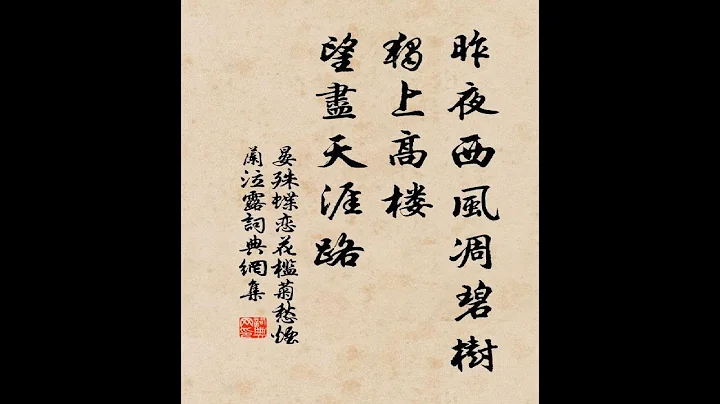 昨夜西風凋碧樹
獨上高楼
望盡天涯路
晏殊蝶恋花槛菊愁煙
蘭泣露詞典網集